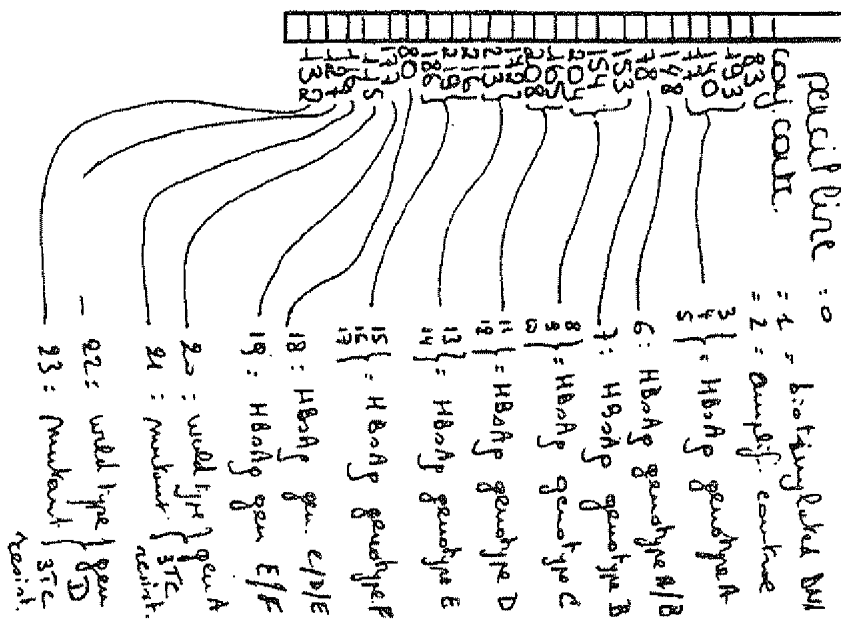 pencil line : 0
conj. contr. = 1 = biotinylated DNA
83 = 2 = amplif. control
193 3
140 4 } = HBsAg genotype A
77 5
148 6 : HBsAg genotype A/B
78 7 : HBsAg genotype B
153 8
154 9 } = HBsAg genotype C
204 10
165 11
208 12 } = HBsAg genotype D
13
213 14 } = HBsAg genotype E
216 15
219 16 } = HBsAg genotype F
186 17
80 18 : HBsAg gen. C/D/E
177 19 : HBsAg gen E/F
115 20 : wild type } gen A
169 21 : mutant } 3TC resist.
127 22 : wild type } gen D
132 23 : mutant } 3TC resist.